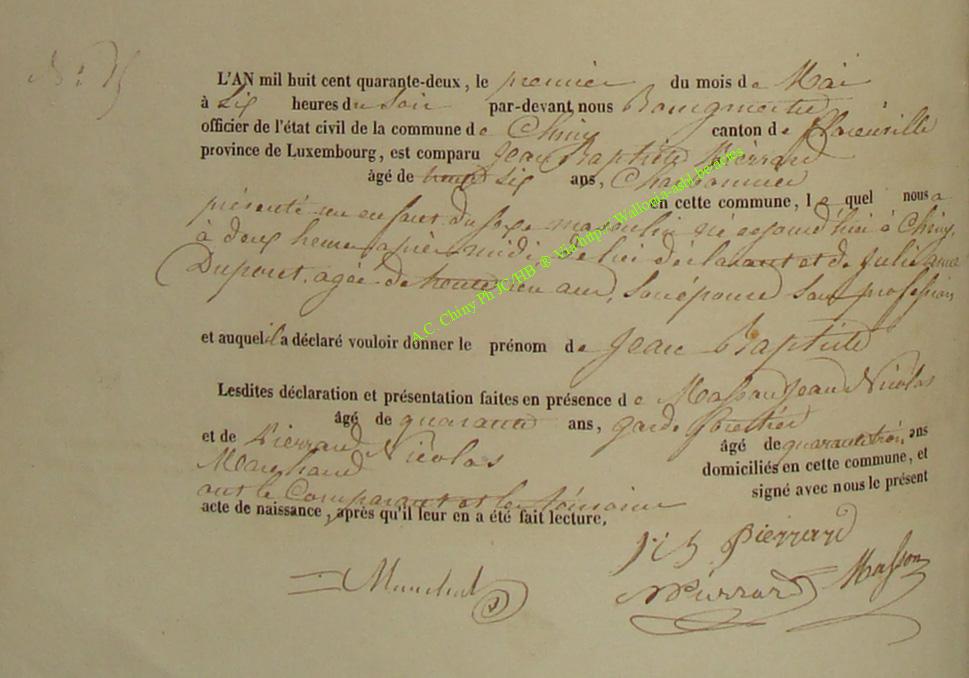 L'AN mil huit cent quarante-deux, le premier du mois de Mai
à six heures du soir par-devant nous Bourgmestre
officier de l'état civil de la commune de Chiny canton de Florenville
province de Luxembourg, est comparu Jean Baptiste Pierrard
âgé de trente six ans, Charbonnier
en cette commune, le quel nous a
présenté un enfant du sexe masculin né aujourd'hui à Chiny,
à deux heures après midi, de lui déclarant et de Julie Anne
Dupont, agée de trente un ans, son épouse sans profession
et auquel il a déclaré vouloir donner le prénom de Jean Baptiste
Lesdites déclaration et présentation faites en présence de Masson Jean Nicolas
âgé de quarante ans, garde forestier
et de Pierrard Nicolas âgé de quarante trois ans
Marchand domiciliés en cette commune, et
ont le Comparant et les témoins signé avec nous le présent
acte de naissance, après qu'il leur en a été fait lecture,
J B Pierrard
N Pierrard Masson
A.C. Chiny Ph JC/HB ® Via http://Wallonia-asbl.be/actes